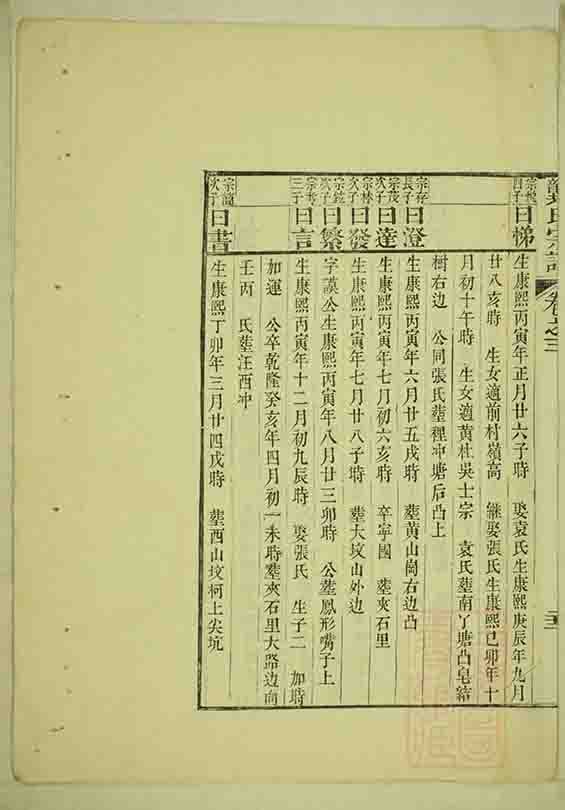 氏宗譜 卷之三
曰梯 生康熙丙寅年正月廿六子時 娶袁氏生康熙庚辰年九月
廿八亥時 生女適前村嶺高 繼娶張氏生康熙己卯年十
月初十午時 生女適黃杜吳士宗 袁氏塟南了塘凸皂結
樹右边 公同張氏塟裡冲塘后凸上
宗存長子曰澄 生康熙丙寅年六月廿五戌時 塟黃山崗右边凸
宗茂次子曰達 生康熙丙寅年七月初六亥時 卒寧國 塟夾石里
宗林次子曰發 生康熙丙寅年七月廿八子時 塟大坟山外边
次子曰繁 字謨公生康熙丙寅年八月廿三卯時 公塟鳳形嘴子上
三子曰言 生康熙丙寅年十二月初九辰時 娶張氏 生子二 加時
加運 公卒乾隆癸亥年四月初一未時塟夾石里大路边向
壬丙 氏塟汪西冲
宗龍次子曰書 生康熙丁卯年三月廿四戌時 塟西山坟柯上尖坑